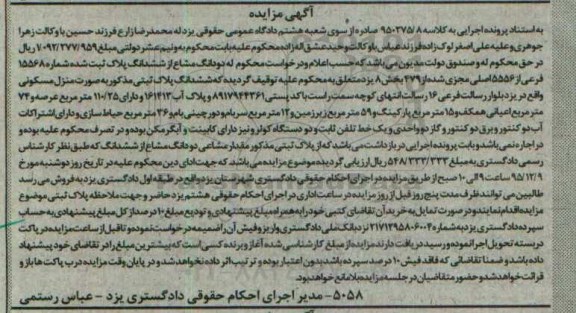 آگهی مزایده
به استناد پرونده اجرایی به کلاسه ۹۵۰۲۷۵/۸ صادره از سوی شعبه هشتم دادگاه عمومی حقوقی یزد له محمدرضا زارع فرزند حسین با وکالت زهرا
جوهری و علیه علی اصغر لوک زاده فرزند عباس با وکالت وحید عشق اله زاده محکوم علیه بابت محکوم به و نیم عشر دولتی مبلغ ۷۰۹۲/۲۷۷/۹۵۹ ریال
در حق محکوم له و صندوق دولت مدیون می باشد که حسب اعلام و درخواست محکوم له دو دانگ مشاع از ششدانگ پلاک ثبت شده شماره ۱۵۵۶۸
فرعی از ۵۵۵۶ اصلی مجزی شده از ۴۷۹ بخش ۸ یزد متعلق به محکوم علیه توقیف گردیده که ششدانگ پلاک ثبتی مذکور به صورت منزل مسکونی
واقع در یزد بلوار رسالت فرعی ۱۶ رسالت انتهای کوچه سمت راست با کد پستی ۸۹۱۷۹۴۴۳۶۱ و پلاک آب ۱۶۱۴۱۳ و دارای ۱۱۰/۲۵ متر مربع عرصه و ۷۴
متر مربع اعیانی همکف و ۱۵ متر مربع پارکینگ و ۵۹ متر مربع زیرزمین و ۱۲ متر مربع سربام و دور چینی بام و ۳۶ متر مربع حیاط سازی و دارای اشتراکات
آب دو کنتور و برق دو کنتور و گاز دو واحدی و یک خط تلفن ثابت و دو دستگاه کولر و نیز دارای کابینت و آبگرمکن بوده و در تصرف محکوم علیه بوده و
در اجاره نمی باشد و بابت پرونده اجرایی در بازداشت می باشد که از پلاک ثبتی مذکور مقدار مشاعی دو دانگ مشاع از ششدانگ که طبق نظر کارشناس
رسمی دادگستری به مبلغ ۵۴۸/۳۳۳/۳۳۳ ریال ارزیابی گردیده موضوع مزایده می باشد که جهت ادای دین محکوم علیه در تاریخ روز دوشنبه مورخ
۹۵/۱۲/۹ ساعت ۹ الی ۱۰ صبح از طریق مزایده در اجرای احکام حقوقی دادگستری شهرستان یزد واقع در طبقه اول دادگستری یزد به فروش می رسد
طالبین می توانند ظرف مدت پنج روز قبل از روز مزایده در ساعات اداری در اجرای احکام حقوقی هشتم یزد حاضر و جهت ملاحظه پلاک ثبتی موضوع
مزایده اقدام نمایند و در صورت تمایل به خرید آن تقاضای کتبی خود را به همراه مبلغ پیشنهادی و تودیع مبلغ ۱۰ درصد از کل مبلغ پیشنهادی به حساب
سپرده دادگستری یزد به شماره ۲۱۷۱۲۹۵۸۰۶۰۰۴ نزد بانک ملی دادگستری واریز و فیش آن را ضمیمه درخواست نموده و تا قبل از ساعت مزایده در پاکت
در بسته تحویل اجرا نموده و رسید دریافت دارند مزایده از مبلغ کارشناسی شده آغاز و برنده کسی است که بیشترین مبلغ را در تقاضای خود پیشنهاد
داده باشد و ضمنا تقاضائی که فاقد فیش ۱۰ درصد سپرده باشد بدون اعتبار بوده و ترتیب اثر داده نخواهد شد و در پایان وقت مزایده درب پاکت ها باز و
قرائت خواهد شد و حضور متقاضیان در جلسه مزایده بلامانع خواهد بود.
۵۰۵۸- مدیر اجرای احکام حقوقی دادگستری یزد - عباس رستمی